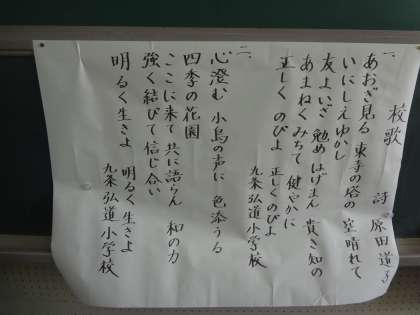 校歌
詩 原田道子
一、
あおぎ見る 東寺の塔の 空晴れて
いにしえゆかし
友よいざ 勉めはげまん 貴き知の
あまねくみちて 健やかに
正しくのびよ 正しくのびよ
九条弘道小学校
二、
心澄む 小鳥の声に 色添うる
四季の花園
ここに来て 共に語らん 和の力
強く結びて 信じ合い
明るく生きよ 明るく生きよ
九条弘道小学校